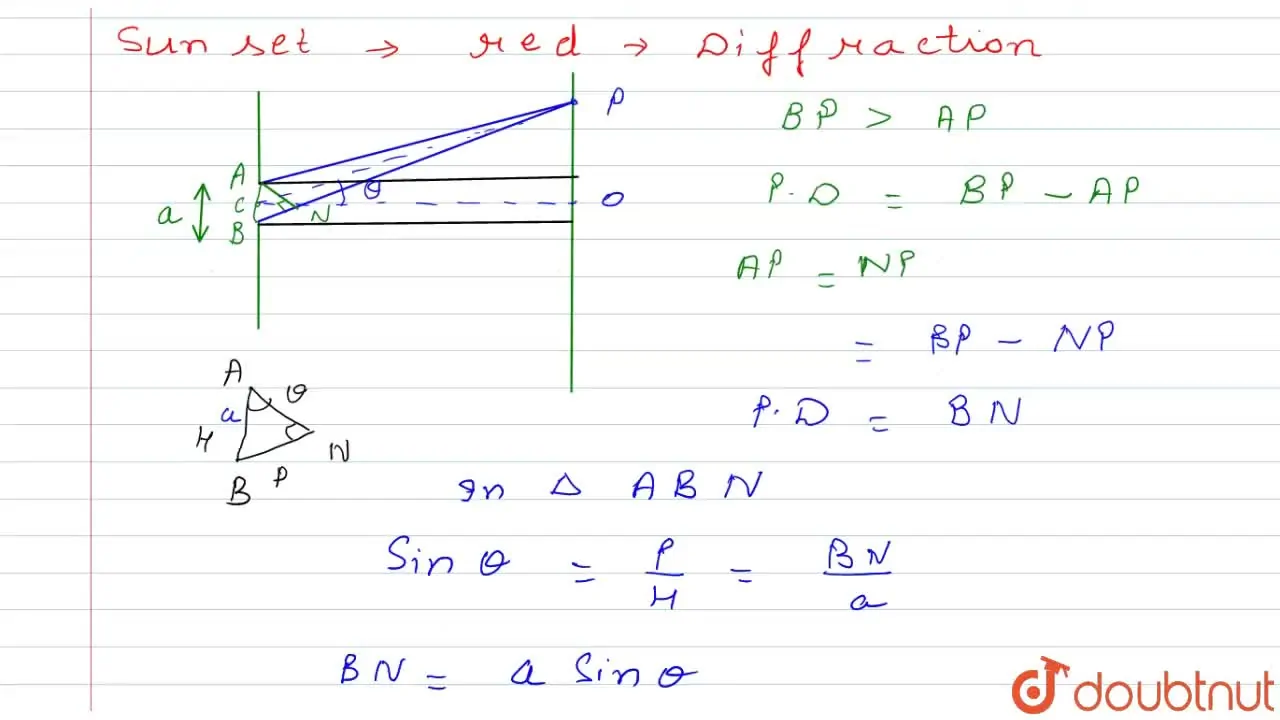 Sun set → red → Diffraction
P
BP > AP
A
θ
a
C
N
O
B
P.D = BP - AP
AP = NP
= BP - NP
A
θ
a
H
N
B
P
P.D = BN
In Δ ABN
Sin θ = P/H = BN/a
BN = a Sin θ
doubtnut